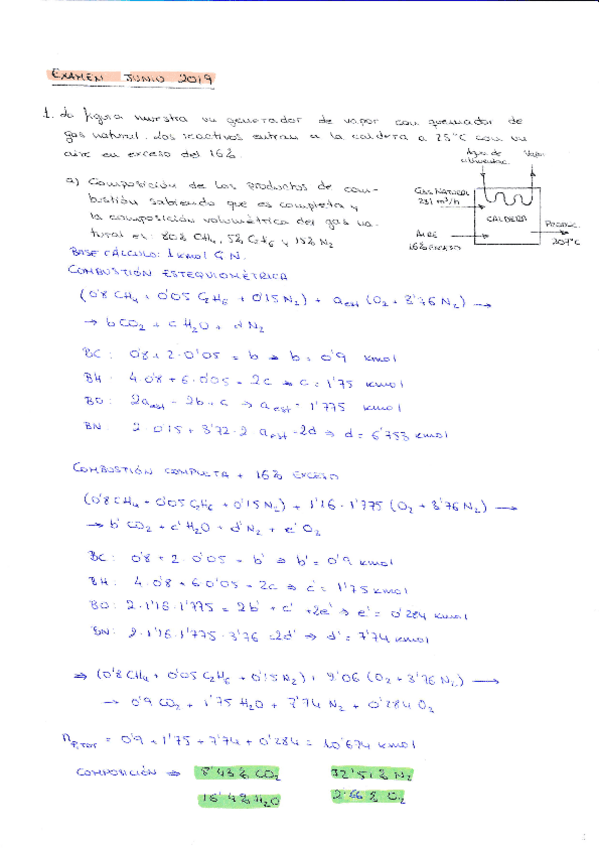 EXAMEN JUNIO 2019
1. La figura muestra un generador de vapor con quemador de
gas natural. Los reactivos entran a la caldera a 25°C con un
aire en exceso del 16%.
Agua de alimentac.
Vapor
GAS NATURAL
231 m³/h
CALDERA
AIRE
16% EXCESO
Product.
207°C
a) Composición de los productos de com-
bustión sabiendo que es completa y
la composición volumétrica del gas na-
tural es: 80% CH4, 5% C2H6 y 15% N2
BASE CÁLCULO: 1 kmol G.N.
COMBUSTIÓN ESTEQUIOMÉTRICA
(0'8 CH4 + 0'05 C2H6 + 0'15 N2) + aest (O2 + 3'76 N2) →
→ b CO2 + c H2O + d N2
BC: 0'8 + 2·0'05 = b → b = 0'9 kmol
BH: 4·0'8 + 6·0'05 = 2c → c = 1'75 kmol
BO: 2aest = 2b + c ⇒ aest = 1'775 kmol
BN: 2·0'15 + 3'72·2 aest = 2d ⇒ d = 6'753 kmol
COMBUSTIÓN COMPLETA + 16% EXCESO
(0'8 CH4 + 0'05 C2H6 + 0'15 N2) + 1'16·1'775 (O2 + 3'76 N2) →
→ b' CO2 + c' H2O + d' N2 + e' O2
BC: 0'8 + 2·0'05 = b' ⇒ b' = 0'9 kmol
BH: 4·0'8 + 6·0'05 = 2c ⇒ c' = 1'75 kmol
BO: 2·1'16·1'775 = 2b' + c' + 2e' ⇒ e' = 0'284 kmol
BN: 2·1'16·1'775·3'76 = 2d' ⇒ d' = 7'74 kmol
⇒ (0'8 CH4 + 0'05 C2H6 + 0'15 N2) + 2'06 (O2 + 3'76 N2) →
→ 0'9 CO2 + 1'75 H2O + 7'74 N2 + 0'284 O2
nP,TOT = 0'9 + 1'75 + 7'74 + 0'284 = 10'674 kmol
COMPOSICIÓN ⇒ 8'43% CO2 72'51% N2
16'4% H2O 2'66% O2